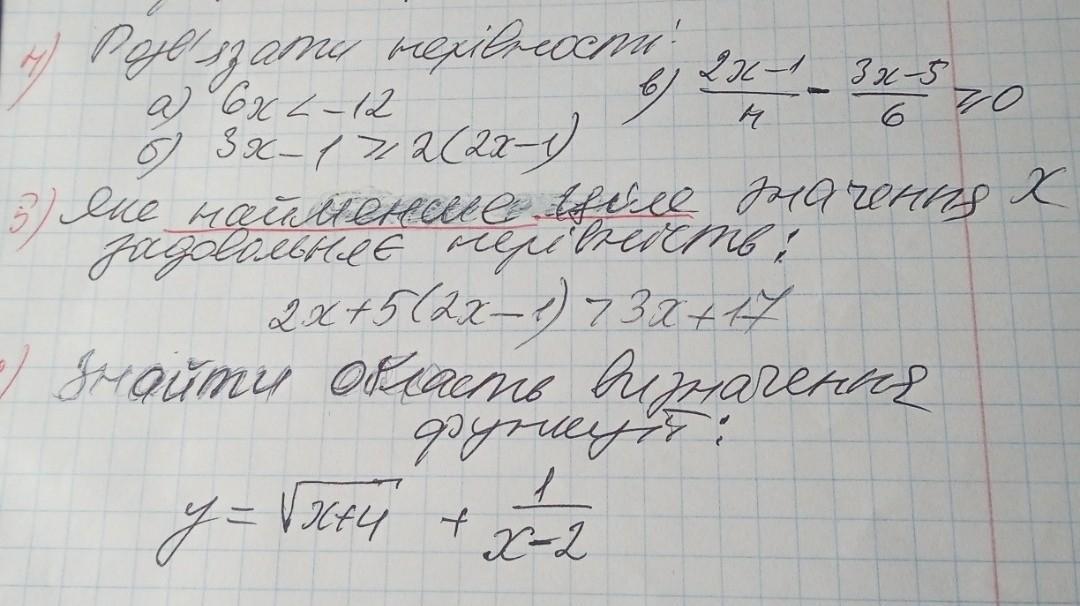 4) Розв'язати нерівності:
а) 6x < -12
в) (2x-1)/4 - (3x-5)/6 ≥ 0
б) 3x-1 ≥ 2(2x-1)
5) Яке найменше ціле значення x
задовольняє нерівність:
2x+5(2x-1) > 3x+17
) Знайти область визначення
функції:
y = √(x+4) + 1/(x-2)